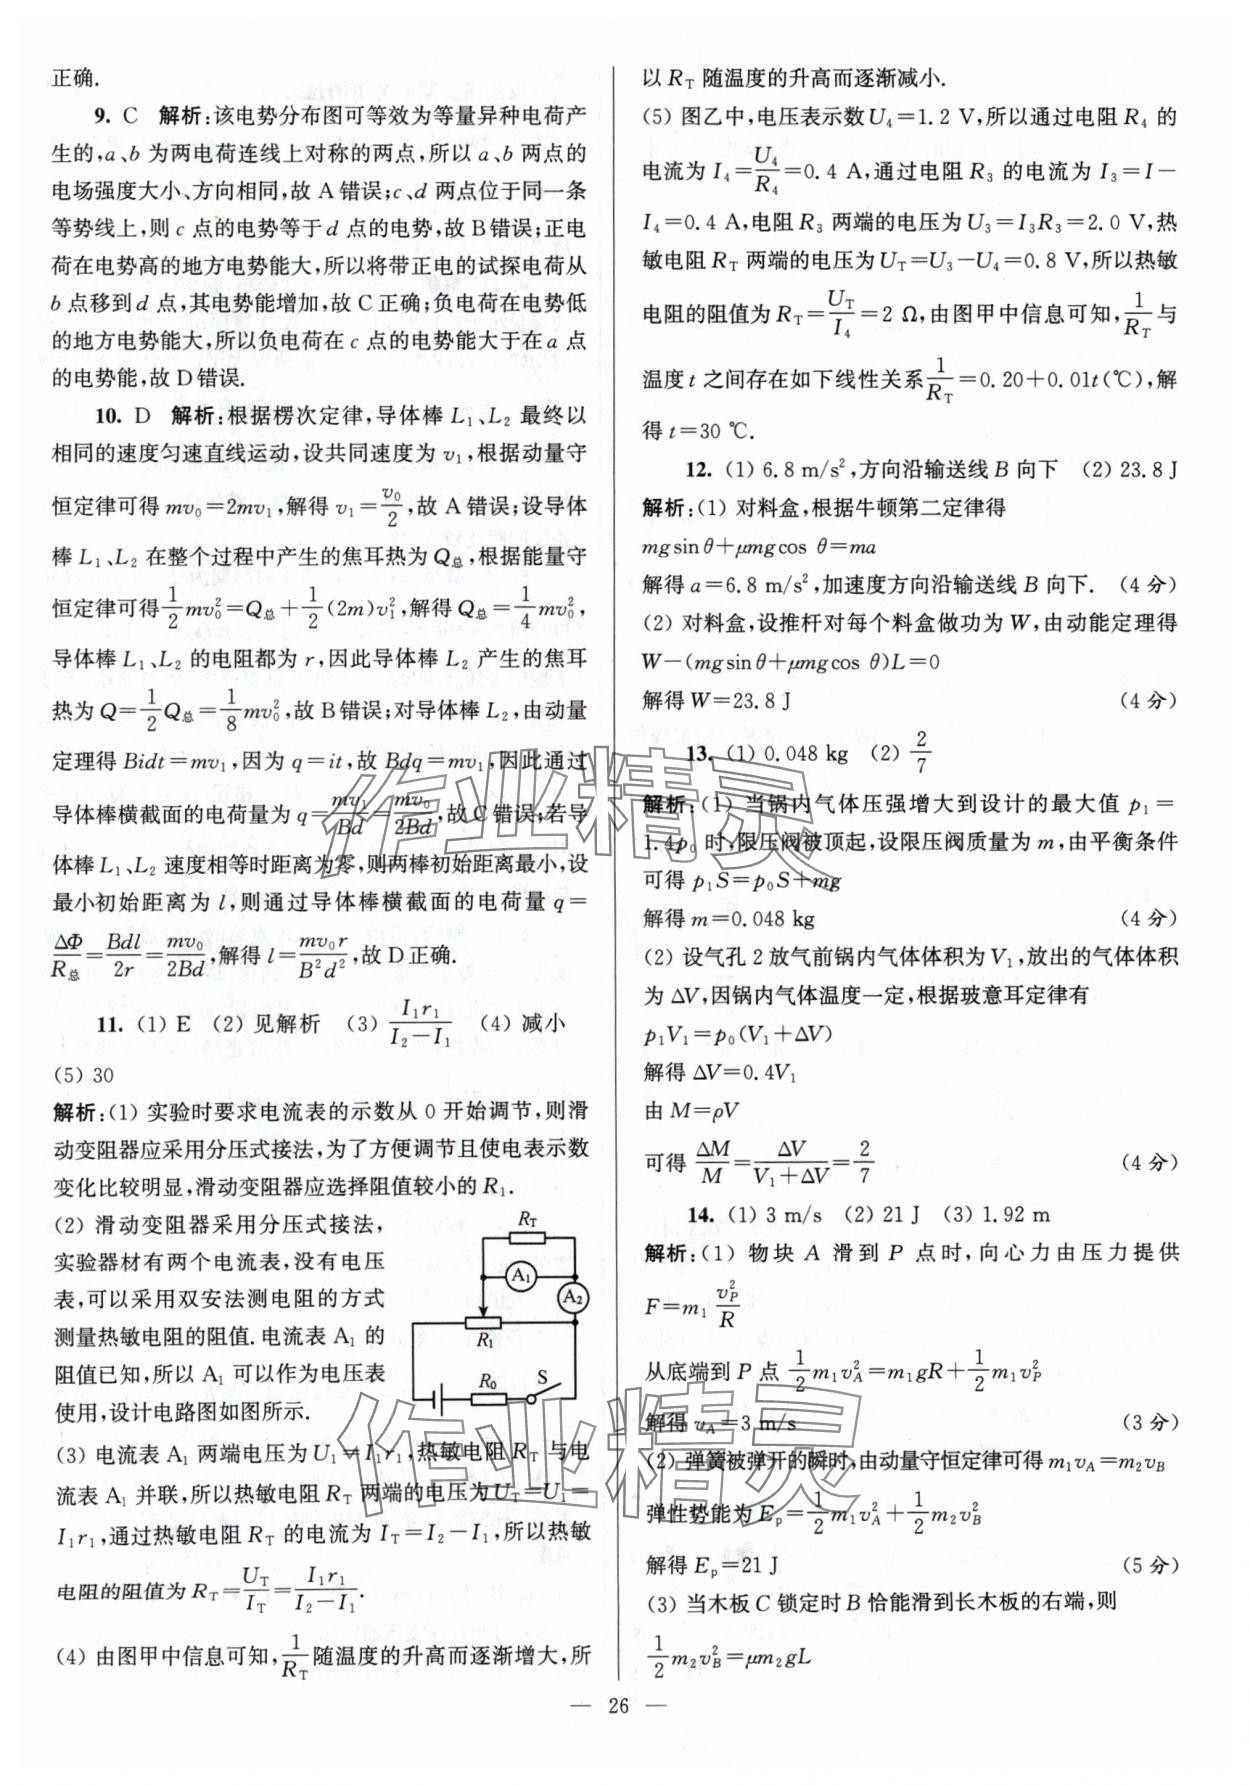 正确.
9. C 解析:该电势分布图可等效为等量异种电荷产
生的,a、b 为两电荷连线上对称的两点,所以 a、b 两点的
电场强度大小、方向相同,故 A 错误;c、d 两点位于同一条
等势线上,则 c 点的电势等于 d 点的电势,故 B 错误;正电
荷在电势高的地方电势能大,所以将带正电的试探电荷从
b 点移到 d 点,其电势能增加,故 C 正确;负电荷在电势低
的地方电势能大,所以负电荷在 c 点的电势能大于在 a 点
的电势能,故 D 错误.
10. D 解析:根据楞次定律,导体棒 L₁、L₂ 最终以
相同的速度匀速直线运动,设共同速度为 v₁,根据动量守
恒定律可得 mv₀=2mv₁,解得 v₁=v₀/2,故 A 错误;设导体
棒 L₁、L₂ 在整个过程中产生的焦耳热为 Q总,根据能量守
恒定律可得 1/2 mv₀²=Q总+1/2 (2m)v₁²,解得 Q总=1/4 mv₀²,
导体棒 L₁、L₂ 的电阻都为 r,因此导体棒 L₂ 产生的焦耳
热为 Q=1/2 Q总=1/8 mv₀²,故 B 错误;对导体棒 L₂,由动量
定理得 Bidt=mv₁,因为 q=it,故 Bdq=mv₁,因此通过
导体棒横截面的电荷量为 q=mv₁/Bd=mv₀/2Bd,故 C 错误;若导
体棒 L₁、L₂ 速度相等时距离为零,则两棒初始距离最小,设
最小初始距离为 l,则通过导体棒横截面的电荷量 q=
ΔΦ/R总=Bdl/2r=mv₀/2Bd,解得 l=mv₀r/B²d²,故 D 正确.
11. (1) E (2) 见解析 (3) I₁r₁/(I₂-I₁) (4) 减小
(5) 30
解析:(1) 实验时要求电流表的示数从 0 开始调节,则滑
动变阻器应采用分压式接法,为了方便调节且使电表示数
变化比较明显,滑动变阻器应选择阻值较小的 R₁.
(2) 滑动变阻器采用分压式接法,
实验器材有两个电流表,没有电压
表,可以采用双安法测电阻的方式
测量热敏电阻的阻值.电流表 A₁ 的
阻值已知,所以 A₁ 可以作为电压表
使用,设计电路图如图所示.
R_T
A₁
A₂
R₁
R₀
S
(3) 电流表 A₁ 两端电压为 U₁=I₁r₁,热敏电阻 R_T 与电
流表 A₁ 并联,所以热敏电阻 R_T 两端的电压为 U_T=U₁=
I₁r₁,通过热敏电阻 R_T 的电流为 I_T=I₂-I₁,所以热敏
电阻的阻值为 R_T=U_T/I_T=I₁r₁/(I₂-I₁).
(4) 由图甲中信息可知,1/R_T 随温度的升高而逐渐增大,所
以 R_T 随温度的升高而逐渐减小.
(5) 图乙中,电压表示数 U₄=1.2 V,所以通过电阻 R₄ 的
电流为 I₄=U₄/R₄=0.4 A,通过电阻 R₃ 的电流为 I₃=I-
I₄=0.4 A,电阻 R₃ 两端的电压为 U₃=I₃R₃=2.0 V,热
敏电阻 R_T 两端的电压为 U_T=U₃-U₄=0.8 V,所以热敏
电阻的阻值为 R_T=U_T/I₄=2 Ω,由图甲中信息可知,1/R_T 与
温度 t 之间存在如下线性关系 1/R_T=0.20+0.01t(℃),解
得 t=30 ℃.
12. (1) 6.8 m/s²,方向沿输送线 B 向下 (2) 23.8 J
解析:(1) 对料盒,根据牛顿第二定律得
mgsin θ+μmgcos θ=ma
解得 a=6.8 m/s²,加速度方向沿输送线 B 向下. (4 分)
(2) 对料盒,设推杆对每个料盒做功为 W,由动能定理得
W-(mgsin θ+μmgcos θ)L=0
解得 W=23.8 J (4 分)
13. (1) 0.048 kg (2) 2/7
解析:(1) 当锅内气体压强增大到设计的最大值 p₁=
1.4p₀ 时,限压阀被顶起,设限压阀质量为 m,由平衡条件
可得 p₁S=p₀S+mg
解得 m=0.048 kg (4 分)
(2) 设气孔 2 放气前锅内气体体积为 V₁,放出的气体体积
为 ΔV,因锅内气体温度一定,根据玻意耳定律有
p₁V₁=p₀(V₁+ΔV)
解得 ΔV=0.4V₁
由 M=ρV
可得 ΔM/M=ΔV/(V₁+ΔV)=2/7 (4 分)
14. (1) 3 m/s (2) 21 J (3) 1.92 m
解析:(1) 物块 A 滑到 P 点时,向心力由压力提供
F=m₁ v_P²/R
从底端到 P 点 1/2 m₁v_A²=m₁gR+1/2 m₁v_P²
解得 v_A=3 m/s (3 分)
(2) 弹簧被弹开的瞬时,由动量守恒定律可得 m₁v_A=m₂v_B
弹性势能为 E_p=1/2 m₁v_A²+1/2 m₂v_B²
解得 E_p=21 J (5 分)
(3) 当木板 C 锁定时 B 恰能滑到长木板的右端,则
1/2 m₂v_B²=μm₂gL
— 26 —
作业精灵
作业精灵